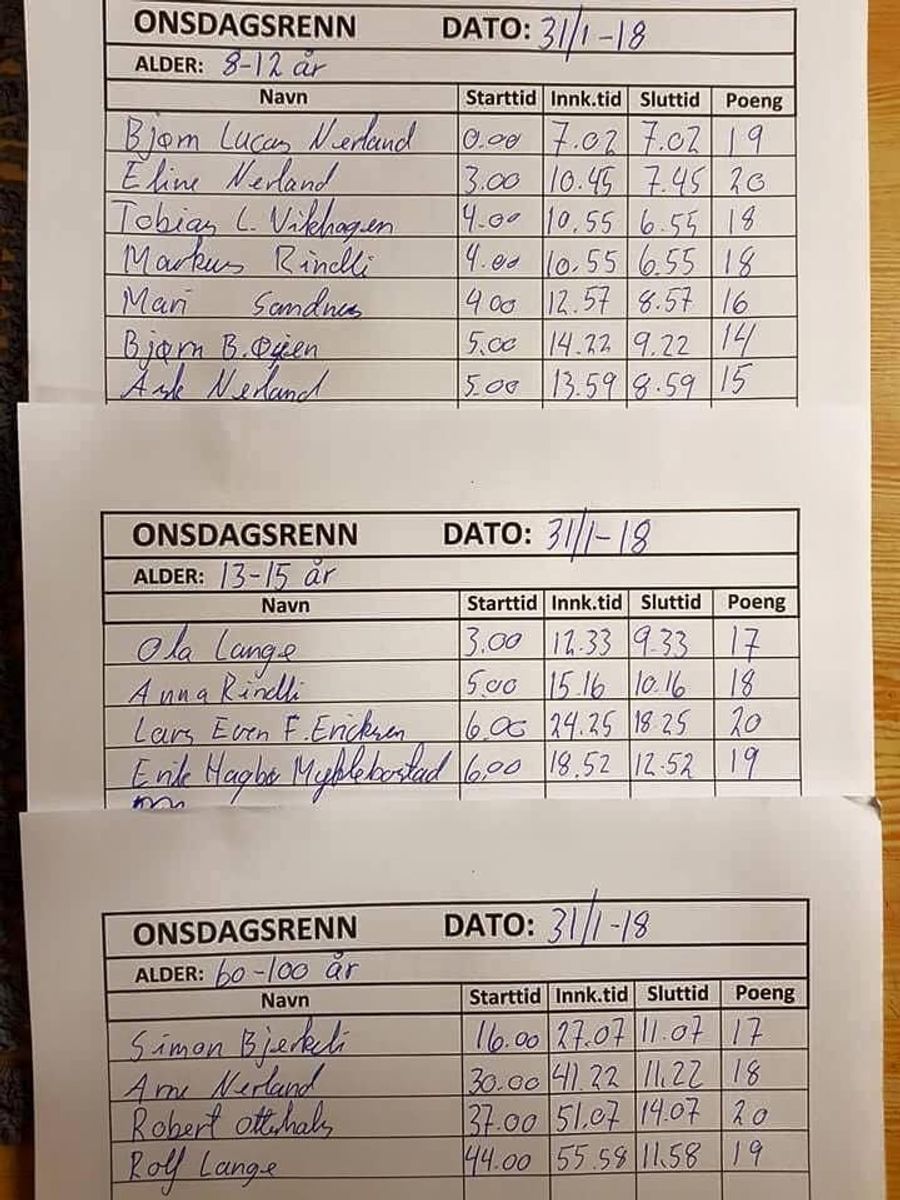 ONSDAGSRENN DATO: 31/1-18
ALDER: 8-12 år
Navn Starttid Innk.tid Sluttid Poeng
Bjørn Lucas Nerland 0.00 7.02 7.02 19
Eline Nerland 3.00 10.45 7.45 20
Tobias L. Vikhagen 4.00 10.55 6.55 18
Markus Rindli 4.00 10.55 6.55 18
Mari Sandnes 4.00 12.57 8.57 16
Bjørn B. Øyen 5.00 14.22 9.22 14
Ask Nerland 5.00 13.59 8.59 15
ONSDAGSRENN DATO: 31/1-18
ALDER: 13-15 år
Navn Starttid Innk.tid Sluttid Poeng
Ola Lange 3.00 12.33 9.33 17
Anna Rindli 5.00 15.16 10.16 18
Lars Even F. Ericksen 6.00 24.25 18.25 20
Erik Hagbø Myklebostad 6.00 18.52 12.52 19
ONSDAGSRENN DATO: 31/1-18
ALDER: 60-100 år
Navn Starttid Innk.tid Sluttid Poeng
Simon Bjerkeli 16.00 27.07 11.07 17
Arne Nerland 30.00 41.22 11.22 18
Robert Otterhals 37.00 51.07 14.07 20
Rolf Lange 44.00 55.58 11.58 19